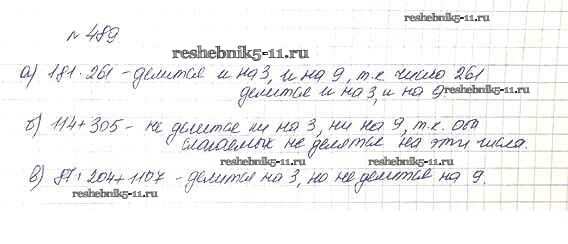 № 489
reshebnik5-11.ru
reshebnik5-11.ru
а) 181·261 - делится и на 3, и на 9, т.к. число 261
делится и на 3, и на 9
reshebnik5-11.ru
б) 114+305 - не делится ни на 3, ни на 9, т.к. оба
слагаемых не делятся на эти числа.
reshebnik5-11.ru reshebnik5-11.ru
в) 87·204+1107 - делится на 3, но не делится на 9.
reshebnik5-11.ru